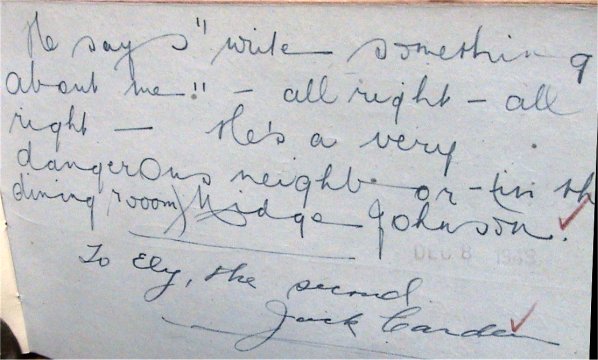 He says "write something
about me" - all right - all
right - He's a very
dangerous neighbor - (in th
dining room) Midge Johnson.
DEC 8 1949
To Ely, the second
Jack Carden